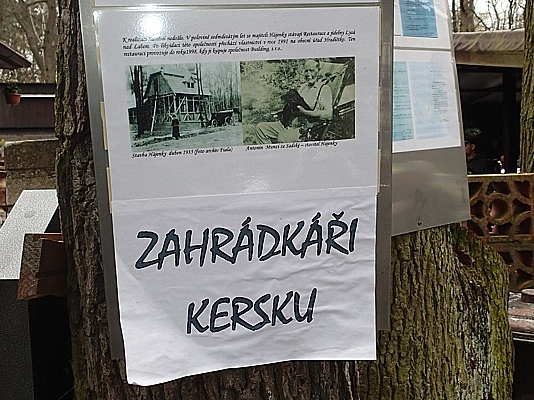 K realizaci
nedošlo. V polovině sedmdesátým let se majiteli Hájenky stávají Restaurace a jídelny Lysá
nad Labem. Po likvidaci této společnosti přechází vlastnictví v roce 1991 na obecní úřad Hradištko. Ten
restauraci provozuje do roku1998, kdy ji kupuje společnost Building, s.r.o.
Stavba Hájenky duben 1935 (foto archiv Fiala)
Antonín Munzi ze Sadské – stavitel Hájenky
ZAHRÁDKÁŘI
KERSKU